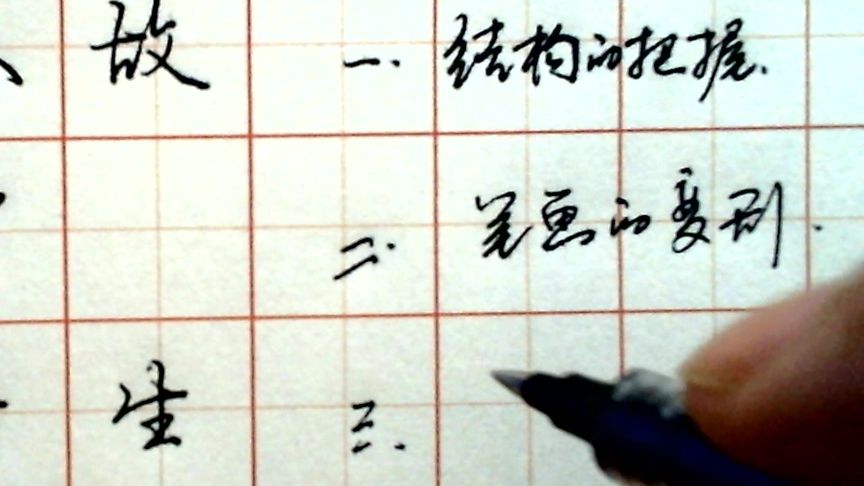 故 一. 结构的把握.
二. 笔画的变形.
生 三.